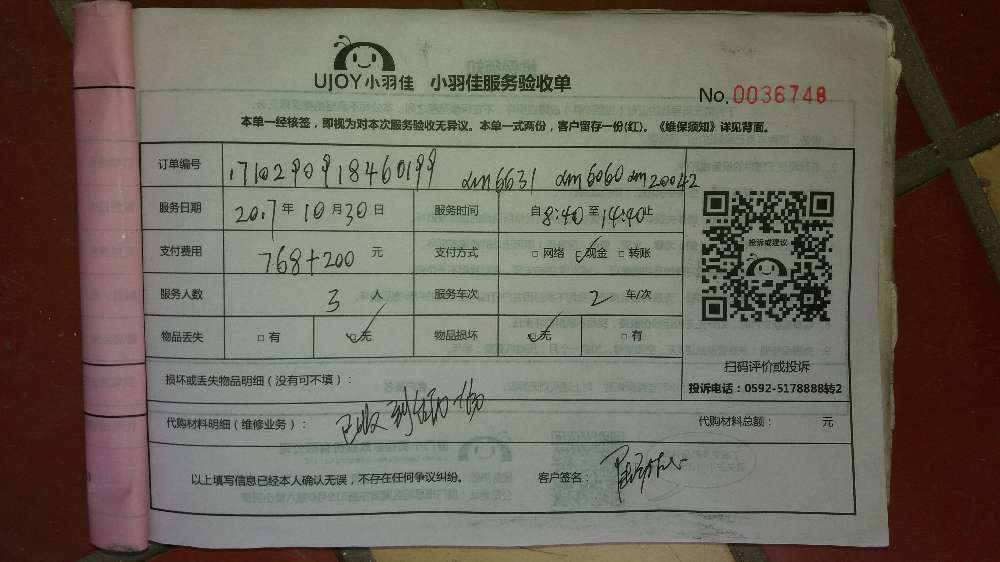 UJOY小羽佳 小羽佳服务验收单
No. 0036748
本单一经核签，即视为对本次服务验收无异议。本单一式两份，客户留存一份(红)。《维保须知》详见背面。
订单编号 dm6631 dm6060 dm20042
服务日期 2017年10月30日 服务时间 自8:40至14:40止
支付费用 768+200 元 支付方式 □网络 ☑现金 □转账
服务人数 3 人 服务车次 2 车/次
物品丢失 □有 ☑无 物品损坏 ☑无 □有
投诉或建议
扫码评价或投诉
投诉电话：0592-5178888转2
损坏或丢失物品明细（没有可不填）：
代购材料明细（维修业务）： 已收到 代购材料总额： 元
以上填写信息已经本人确认无误，不存在任何争议纠纷。 客户签名：